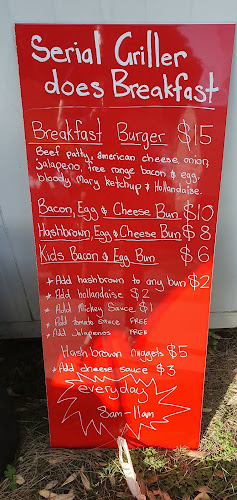 Serial Griller
does Breakfast
Breakfast Burger $15
Beef patty, american cheese, onion,
jalapeno, free range bacon & egg,
bloody Mary ketchup & Hollandaise.
Bacon, Egg & Cheese Bun $10
Hashbrown, Egg & Cheese Bun $8
Kids Bacon & Egg Bun $6
* Add hashbrown to any bun $2
* Add hollandaise $2
* Add Mickey Sauce $1
* Add tomato sauce FREE
* Add Jalapenos FREE
Hash brown nuggets $5
* Add cheese sauce $3
everyday
8am-11am